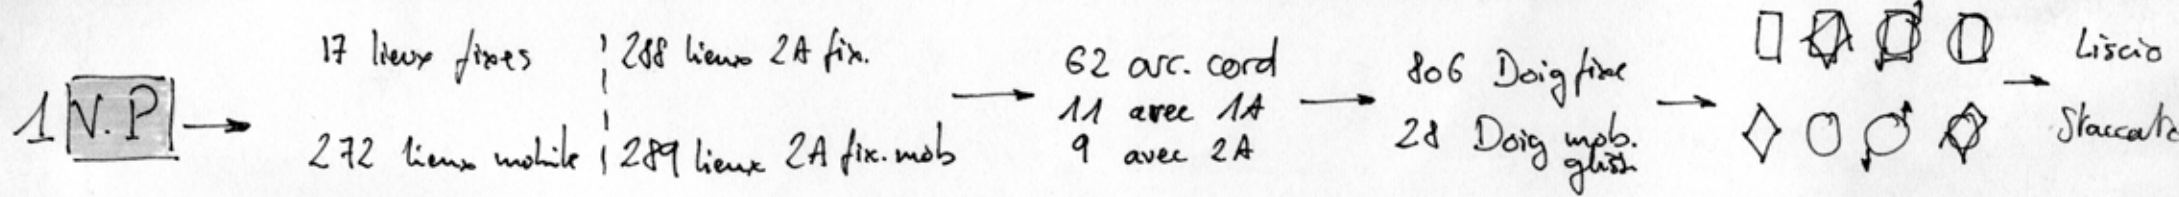 1 V.P
17 lieux fixes
272 lieux mobile
288 lieux 2A fix.
289 lieux 2A fix.mob
62 arc. cord
11 avec 1A
9 avec 2A
806 Doig fixe
28 Doig mob.
gliss.
Liscio
Staccato